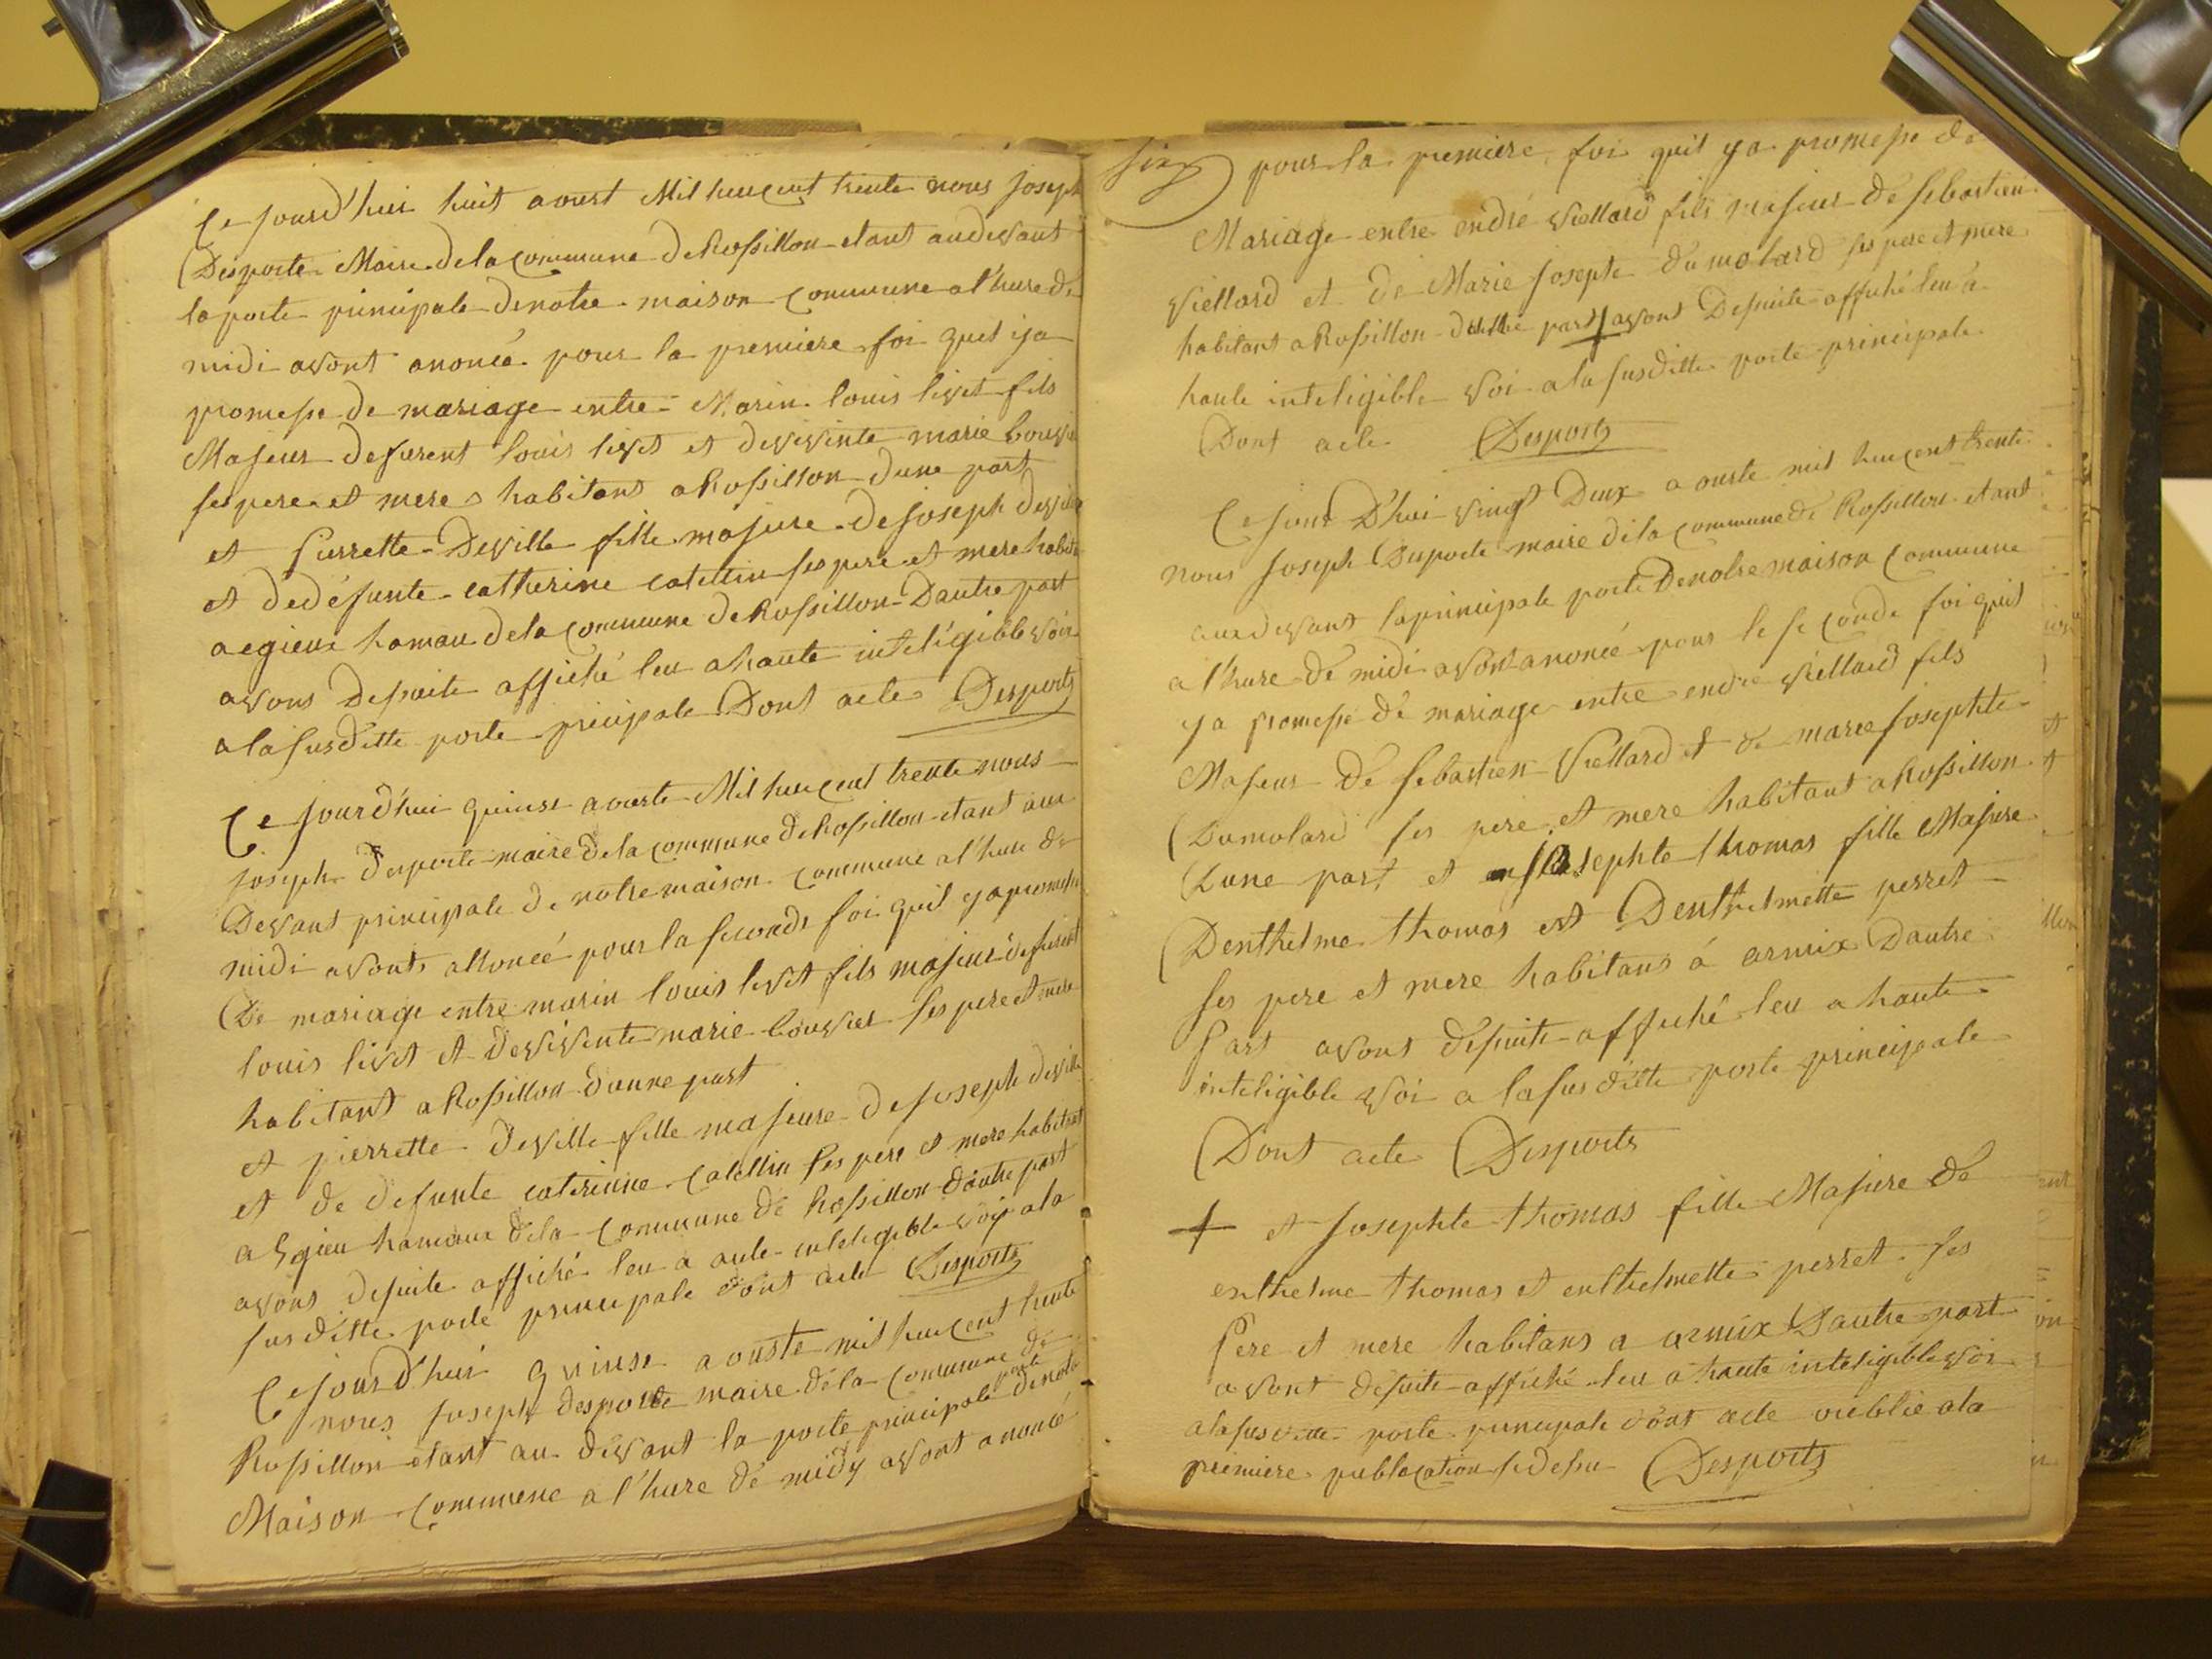 Ce jourd'hui huit aoust Mil huicent trente nous joseph
Desporte Maire de la commune de Rossillon etant audevant
la porte principale de notre maison commune a l'hure de
midi avont anoncé pour la premiere foi quil ija
promesse de mariage entre Marin louis livet fils
Majeur defurent louis livet et devivinte marie bouvier
ses pere et mere habitans a Rossillon dune part
et Pierrette Deville fille majure de joseph deville
et dedéfunte catherine catellin ses pere et mere habit
a egieux hamau dela commune de Rossillon Dautre part
avons depuite affiché leu a haute inteligible voix
a la susditte porte pricipale Dont acte Desports
Ce jourd'hui quinse aouste Mil huicent trente nous
joseph desporte maire de la commune de Rossillon etant aux
Devant principale de notre maison commune a l'hure de
midi avonts anoncé pour la seconde foi quil ya promesse
De mariage entre marin louis livet fils majeur defurent
louis livet et devivente marie bouvier ses pere et mere
habitant a Rossillon dunne part
et pierrette deville fille majeure de joseph deville
et de defunte caterinne catellin ses pere et mere habitant
a Egieu hamaux de la commune de Rossillon dautre part
avons depuite affiché leu a aute inteligible voix a la
susditte porte principale dont acte Desports
Ce jourd'hui quinse aouste mil huicent trente
nous joseph desporte maire de la commune de
Rossillon etant au devant la porte principale porte de notre
Maison commune a l'hure de midy avont anoncé
pour la premiere foi quil ya promesse de
Mariage entre endré viellard fils majeur de sebastien
viellard et de Marie josepte dumolard ses pere et mere
habitant a Rossillon part + avont Depuite affiché leu a
haute inteligible voi a la susditte porte principale
Dont acte Desports
Ce jour D'hui vingt Deux aouste mil huicent trente
nous joseph Desporte maire de la commune de Rossillon etant
aux devant la principale porte De notre maison commune
a l'hure de midi avont anoncé pour le seconde foi quil
ya promesse de mariage entre endré viellard fils
Majeur de sebastien viellard et de marie josephte
Dumolard ses pere et mere habitant a Rossillon
Dune part et josephte thomas fille Majure
Denthelme thomas et Denthelmette perret
ses pere et mere habitans á armix Dautre
Part avont depuite affiché leu a haute
inteligible voi a la susditte porte principale
Dont acte Desports
+ et josephte thomas fille Majure de
enthelme thomas et enthelmette perret ses
Pere et mere habitans a armix Dautre part
avont depuite affiché leu a haute inteligible voi
a la susditte porte principale dont acte oublie a la
premiere publication si desu Desports